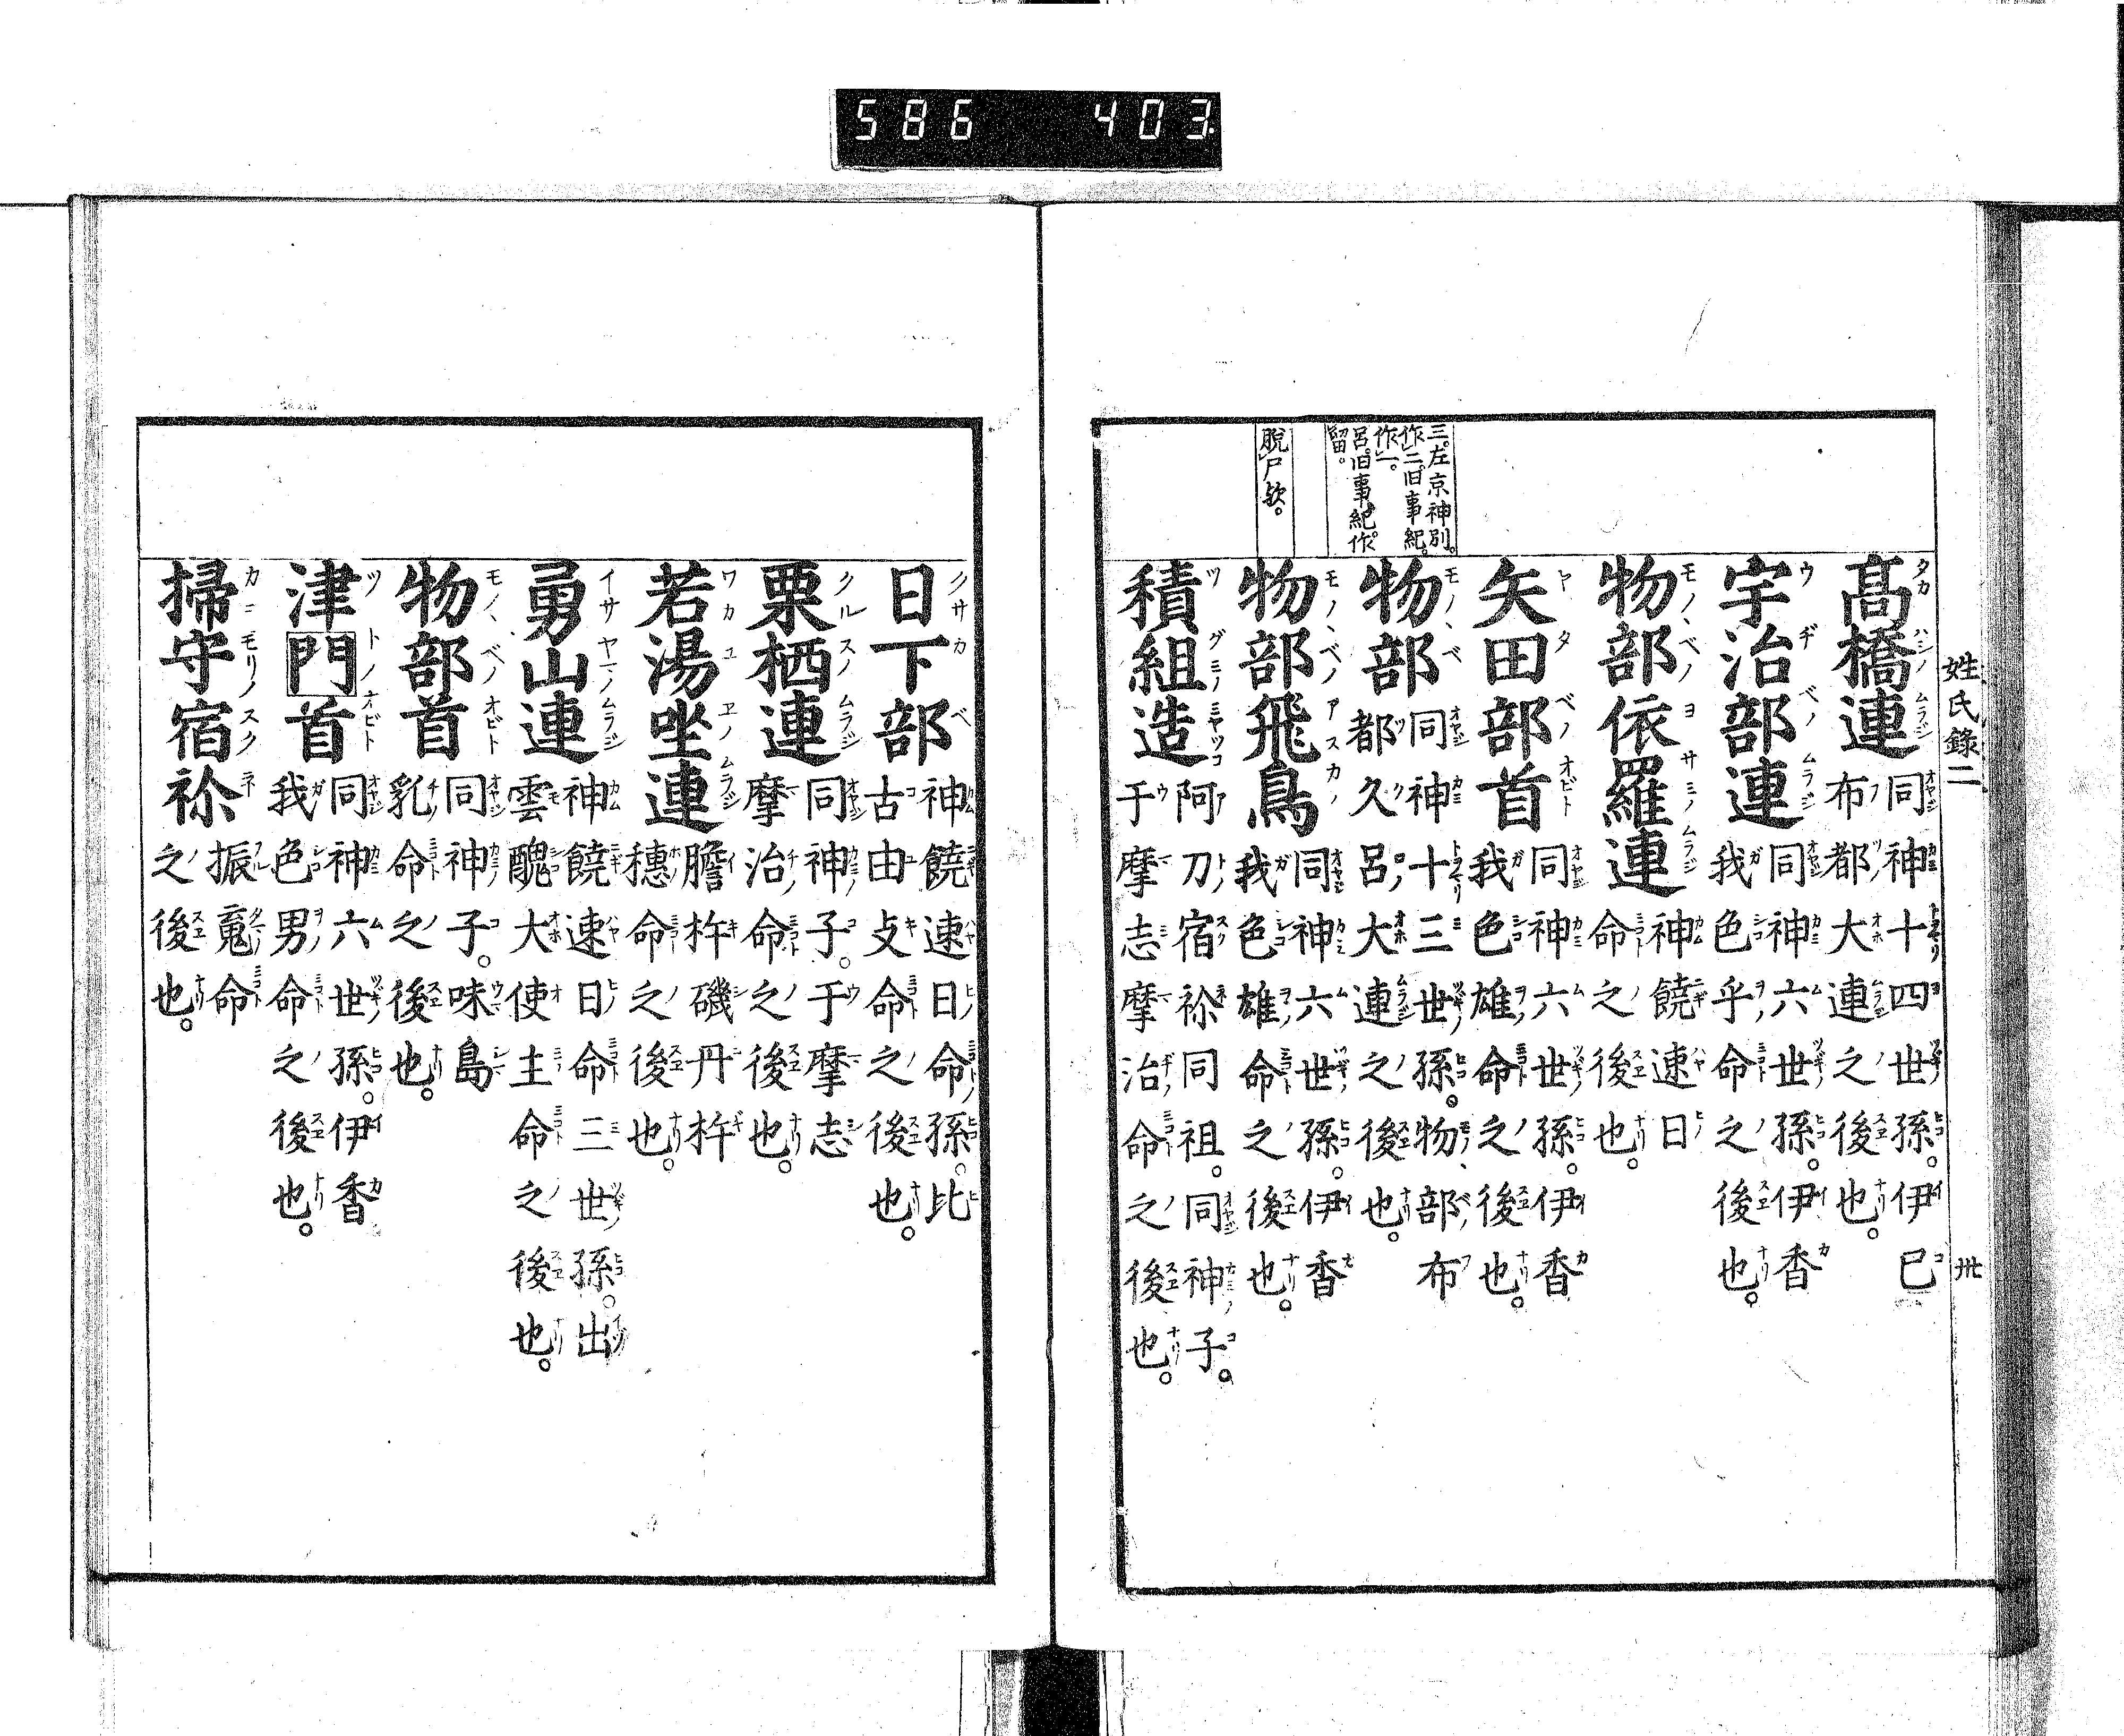 586 403
姓氏録二
卅七
三。左京神別。
作二。旧事紀。
作一。
呂。旧事紀。作
留。
脱尸欤。
髙橋連
同神十四世孫。伊己
布都大連之後也。
宇治部連
同神六世孫。伊香
我色乎命之後也。
物部依羅連
神饒速日
命之後也。
矢田部首
同神六世孫。伊香
我色雄命之後也。
物部
同神十三世孫。物部布
都久呂大連之後也。
物部飛鳥
同神六世孫。伊香
我色雄命之後也。
積組造
阿刀宿祢同祖。同神子。
于摩志摩治命之後也。
日下部
神饒速日命孫。比
古由支命之後也。
栗栖連
同神子。于摩志
摩治命之後也。
若湯坐連
膽杵磯丹杵
穗命之後也。
勇山連
神饒速日命三世孫。出
雲醜大使主命之後也。
物部首
同神子。味島
乳命之後也。
津門首
同神六世孫。伊香
我色男命之後也。
掃守宿祢
振魂命
之後也。